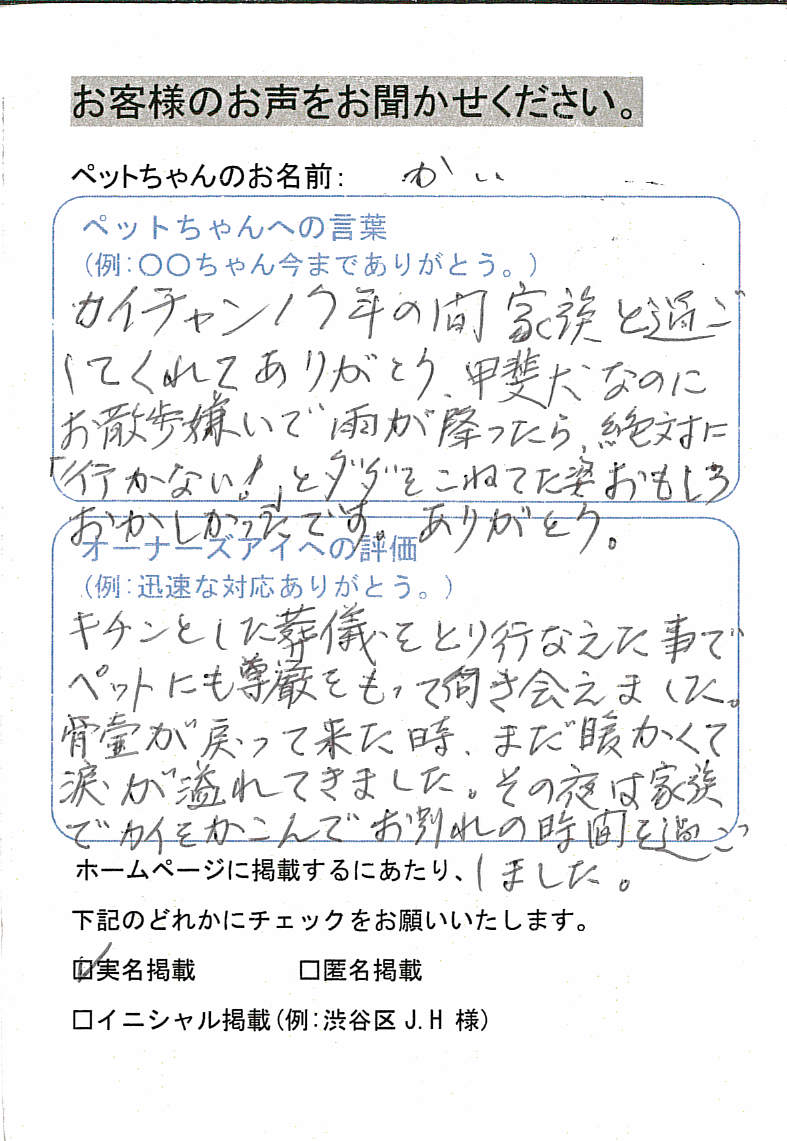 お客様のお声をお聞かせください。
ペットちゃんのお名前: かい
ペットちゃんへの言葉
(例:〇〇ちゃん今までありがとう。)
カイチャン17年の間家族と過ご
してくれてありがとう、甲斐犬なのに
お散歩嫌いで雨が降ったら、絶対に
「行かない!」とダダをこねてた姿おもしろ
おかしかったです。ありがとう。
オーナーズアイへの評価
(例:迅速な対応ありがとう。)
キチンとした葬儀をとり行なえた事で
ペットにも尊厳をもって向き会えました。
骨壷が戻って来た時、まだ暖かくて
涙が溢れてきました。その夜は家族
でカイをかこんでお別れの時間を過ご
しました。
ホームページに掲載するにあたり、
下記のどれかにチェックをお願いいたします。
☑実名掲載 □匿名掲載
□イニシャル掲載(例:渋谷区 J.H 様)